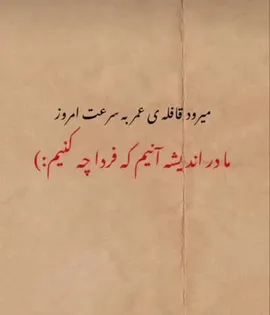 میرود قافله ی عمر به سرعت امروز
ما در اندیشه آنیم که فردا چه کنیم:)